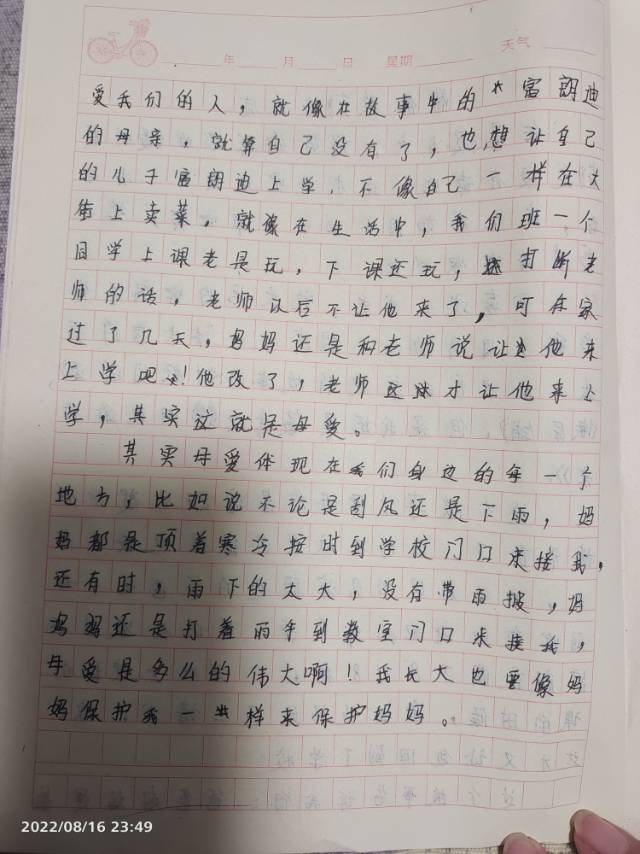 年 月 日 星期 天气
爱我们的人，就像在故事中的宿朗迪
的母亲，就算自己没有了，也想让自己
的儿子宿朗迪上学，不像自己一样在大
街上卖菜，就像在生活中，我们班一个
同学上课老是玩，下课还玩，还打断老
师的话，老师以后不让他来了，可在家
过了几天，妈妈还是和老师说让他来
上学吧！他改了，老师这才让他来上
学，其实这就是母爱。
其实母爱体现在我们身边的每一个
地方，比如说不论是刮风还是下雨，妈
妈都是顶着寒冷按时到学校门口来接我，
还有时，雨下的太大，没有带雨披，妈
妈还是打着雨伞到教室门口来接我，
母爱是多么的伟大啊！我长大也要像妈
妈保护我一样来保护妈妈。
2022/08/16 23:49